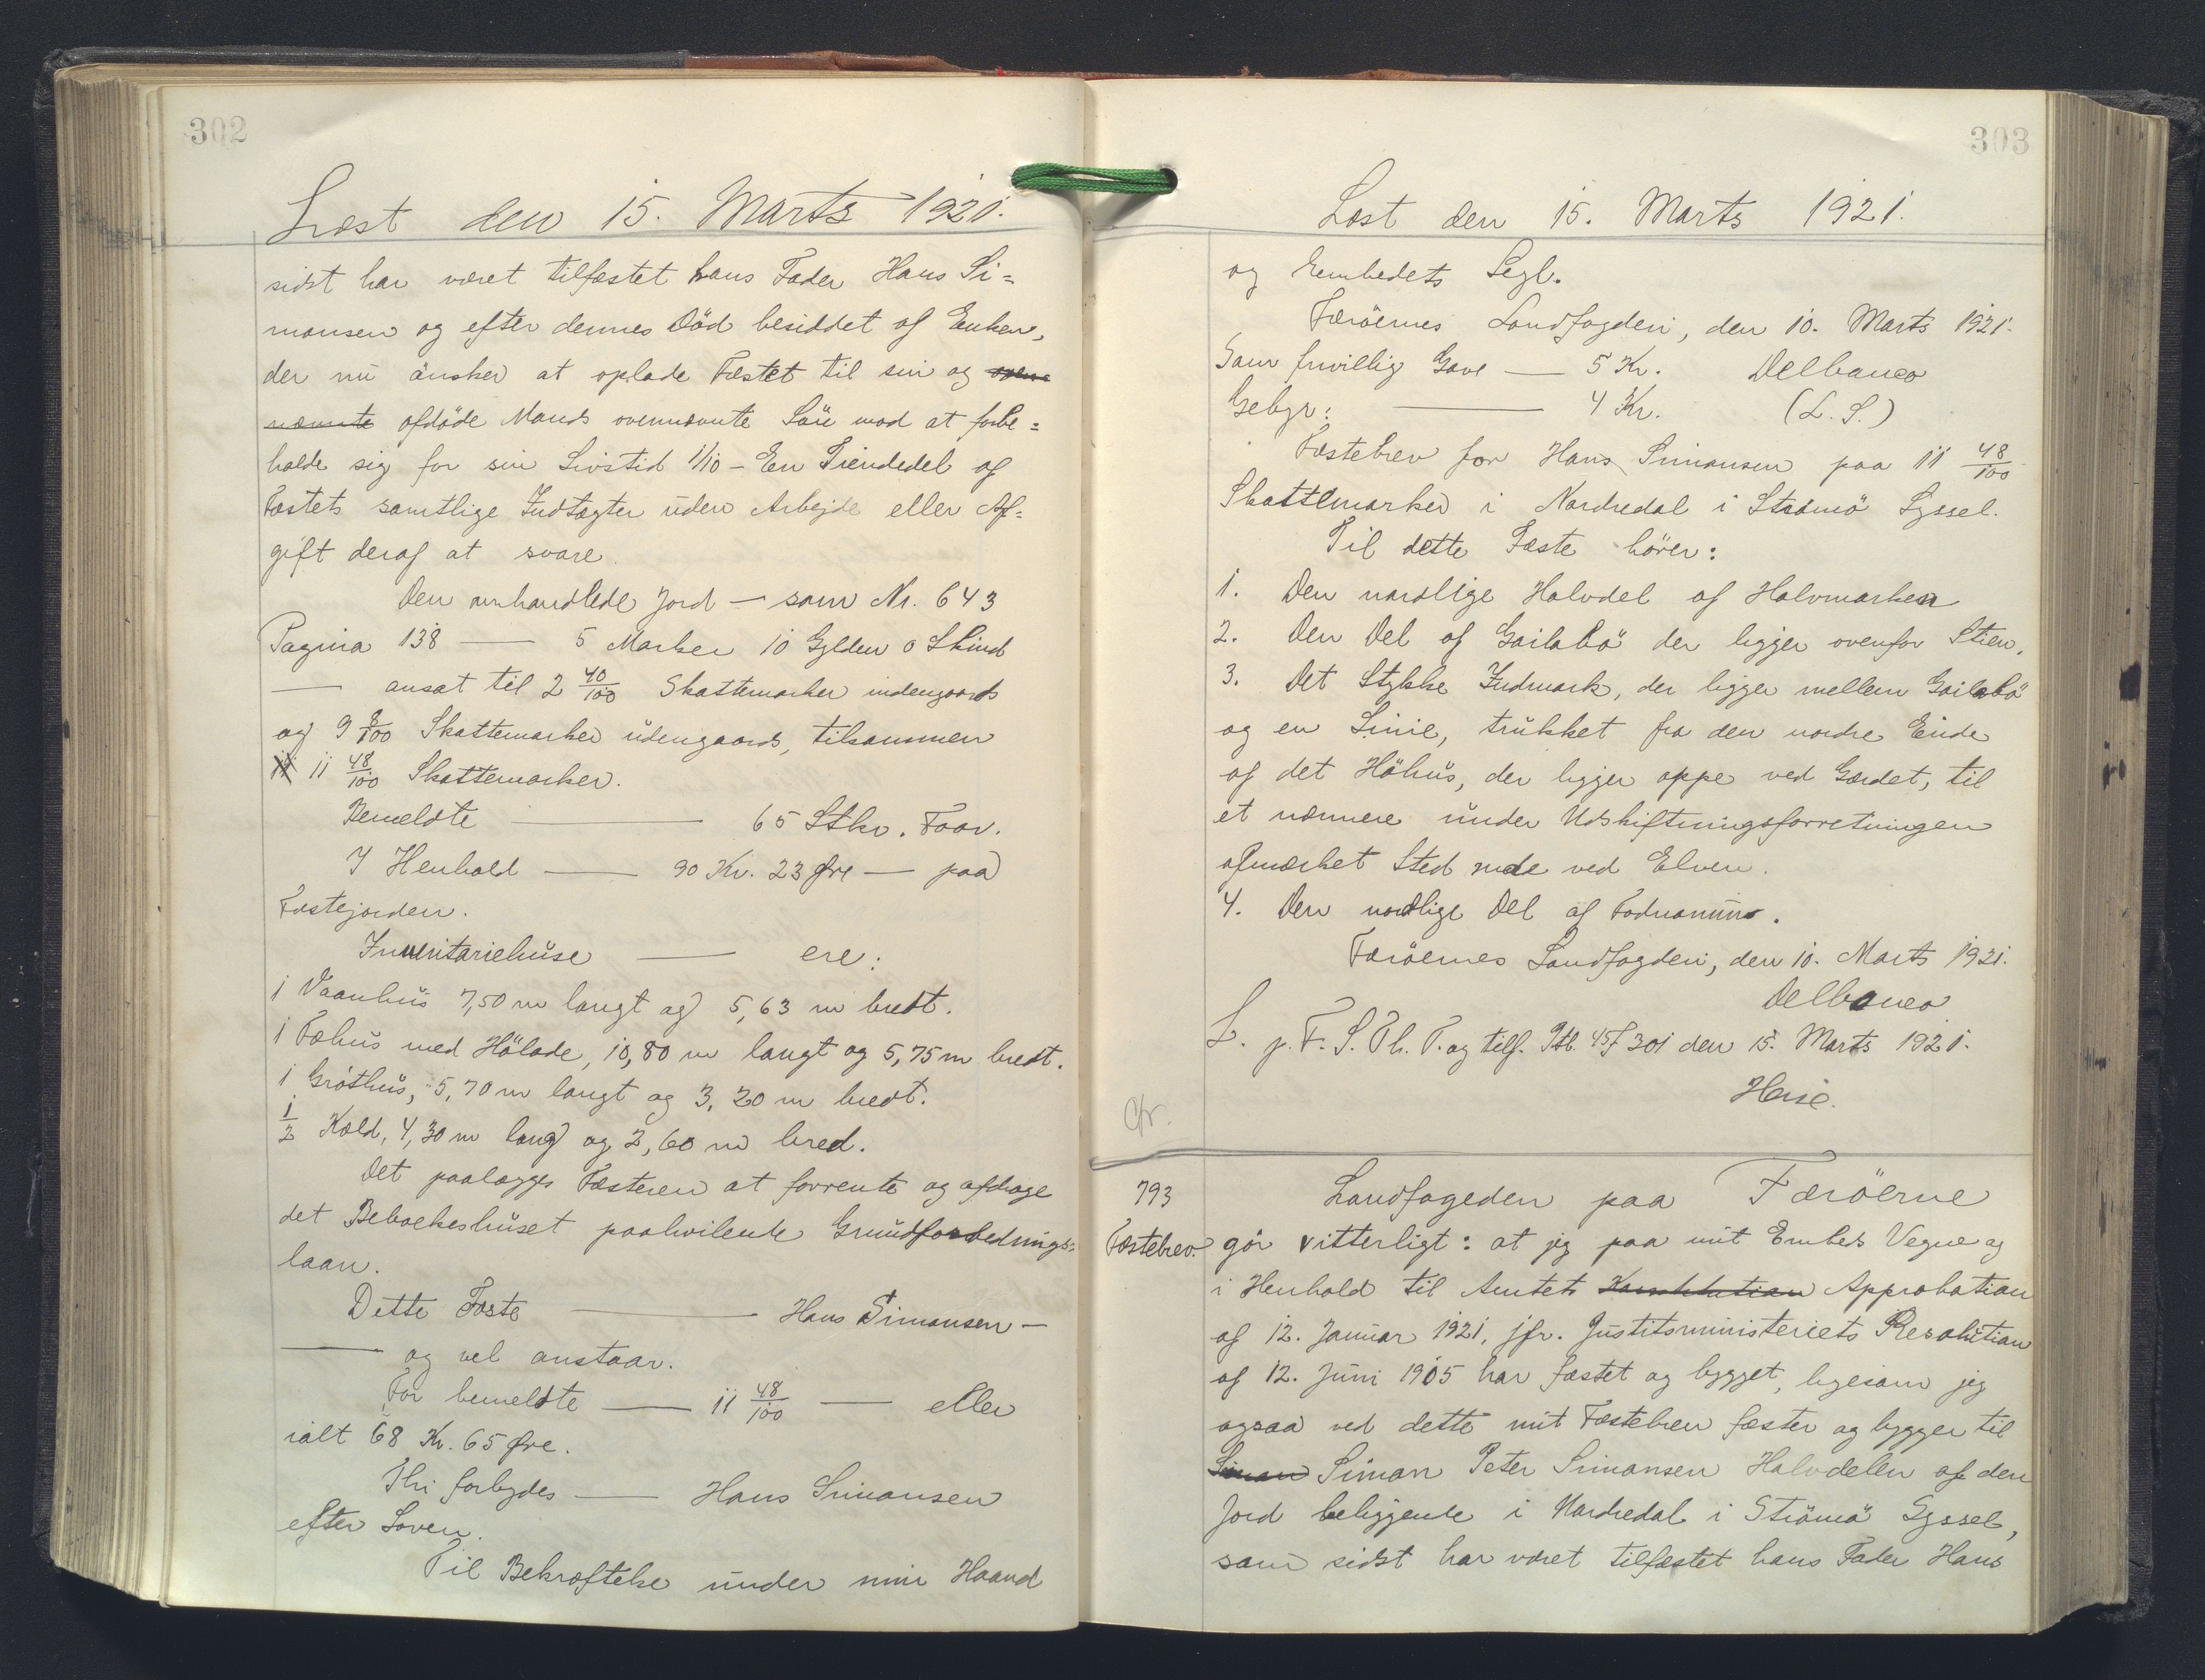 302
Læst den 15. Marts 1921.
sidst har været tilfæstet hans Fader Hans Si=
monsen og efter dennes Död besiddet af Enken,
der nu önsker at oplade Fæstet til sin og oven
nævnte afdöde Mands ovennævnte Sön mod at forbe=
holde sig for sin Livstid 1/10 - En Tiendedel af
Fæstets samtlige Indtægter uden Arbejde eller Af=
gift deraf at svare.
Den omhandlede Jord — som Nr. 643
Pagina 138 — 5 Marker 10 Gylden 0 Skind
— ansat til 2 40/100 Skattemarker indengaards
og 9 8/100 Skattemarker udengaards, tilsammen
11 48/100 Skattemarker.
Bemeldte — 65 Stkr. Faar.
I Henhold — 90 Kr. 23 Øre — paa
Fæstejorden.
Inventariehuse — ere:
1 Vaanhus 7,50 m langt og 5,63 m bredt.
1 Fæhus med Hölade, 10,80 m langt og 5,75 m bredt.
1 Gróthus, 5,70 m langt og 3,20 m bredt.
1/2 Kold, 4,30 m lang og 2,60 m bred.
Det paalægges Fæsteren at forrente og afdrage
det Beboelseshuset paahvilende Grundforbedrings=
laan.
Dette Fæste — Hans Simonsen —
— og vel anstaar.
For bemeldte — 11 48/100 — eller
ialt 68 Kr. 65 Øre.
Thi forbydes — Hans Simonsen
efter Loven.
Til Bekræftelse under min Haand
303
Læst den 15. Marts 1921.
og Embedets Segl.
Færöernes Landfogderi, den 10. Marts 1921.
Som frivillig Gave — 5 Kr. Delbanco
Gebyr: — 4 Kr. (L. S.)
Fæstebrev for Hans Simonsen paa 11 48/100
Skattemarker i Nordredal i Strömö Syssel.
Til dette Fæste hörer:
1. Den nordlige Halvdel af Halvmarken
2. Den Del af Gailabö der ligger ovenfor Stien.
3. Det Stykke Indmark, der ligger mellem Gailabö
og en Linie, trukket fra den nordre Ende
af det Höhus, der ligger oppe ved Gærdet, til
et nærmere under Udskiftningsforretningen
afmærket Sted nede ved Elven.
4. Den nordlige Del af
Færöernes Landfogderi, den 10. Marts 1921.
Delbanco
L. p. F. S. Th. T. og tilf. Ptb. 45 f 301 den 15. Marts 1921.
Heise.
Cfr.
793
Fæstebrev.
Landfogeden paa Færöerne
gör vitterligt: at jeg paa mit Embeds Vegne og
i Henhold til Amtets Konstitution Approbation
af 12. Januar 1921, jfr. Justitsministeriets Resolution
af 12. Juni 1905 har fæstet og bygget, ligesom jeg
ogsaa ved dette mit Fæstebrev fæster og bygger til
Simon Simon Peter Simonsen Halvdelen af den
Jord beliggende i Nordredal i Strömö Syssel,
som sidst har været tilfæstet hans Fader Hans